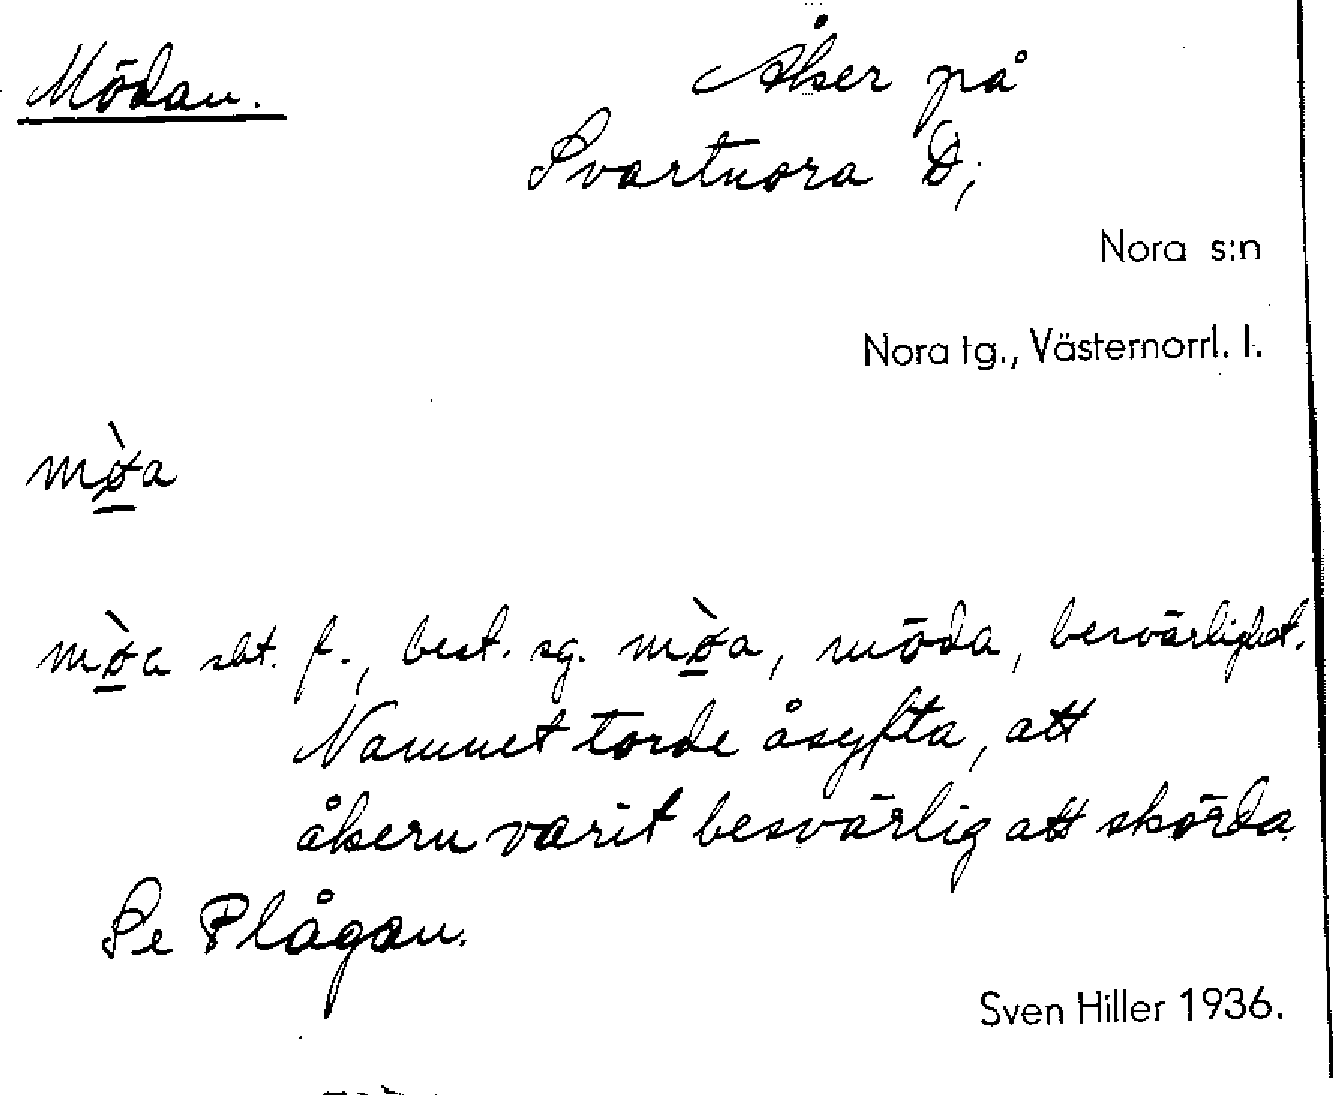 Mödan.
Åker på
Svartnora D;
Nora s:n
Nora tg., Västernorrl. l.
mø̱̀a
mø̱̀a sbt. f., best. sg. mø̱̀a, möda, besvärlighet.
Namnet torde åsyfta, att
åkern varit besvärlig att skörda.
Se Plågan.
Sven Hiller 1936.